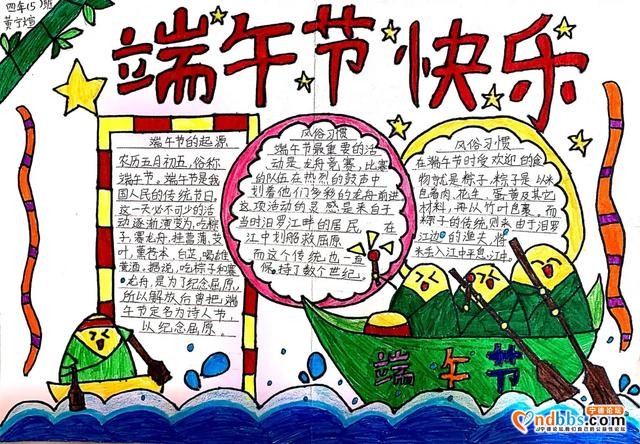 四年(5)班
黄宁煊
端午节快乐
端午节的起源
农历五月初五,俗称
端午节。端午节是我
国人民的传统节日,
这一天必不可少的活
动逐渐演变为:吃粽
子,赛龙舟,挂菖蒲,艾
叶,薰苍术,白芷,喝雄
黄酒。据说,吃粽子和赛
龙舟,是为了纪念屈原,
所以解放后曾把端
午节定名为诗人节,
以纪念屈原。
风俗习惯
端午节最重要的活
动是龙舟竞赛,比赛
的队伍在热烈的鼓声中
划着他们多彩的龙舟前进
这项活动的灵感是来自于
当时汨罗江畔的居民,在
江中划船救屈原
而这个传统也一直
保持了数个世纪。
风俗习惯
在端午节时受欢迎的食
物就是粽子,粽子是以米
包着肉、花生、蛋黄及其它
材料,再以竹叶包裹。而
粽子的传统则由于汨罗
江边的渔夫,将
米丢入江中平息江中
端午节
宁德论坛
ndbbs.com
宁德论坛我们自己的公益性论坛